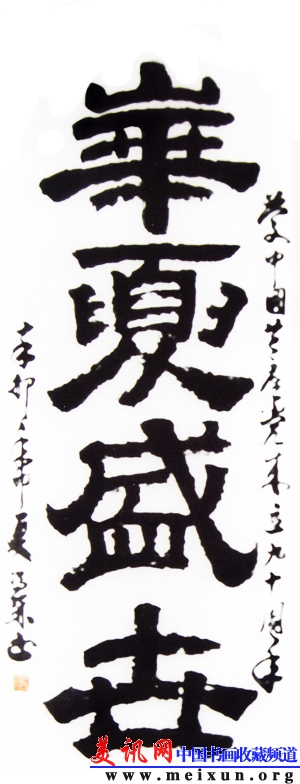 華夏盛世
慶中国共产党成立九十周年
辛卯年仲夏
美讯网 中国书画收藏频道
www.meixun.org